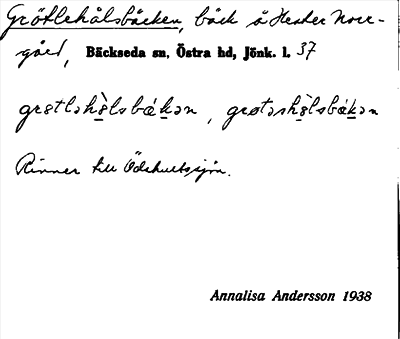 Grötlehålsbäcken, bäck å Hester Norr-
gård, Bäckseda sn, Östra hd, Jönk. l. 37
grøtləhålsbǽkən, grøtəshålsbǽkən
Rinner till Ödshultssjön.
Annalisa Andersson 1938